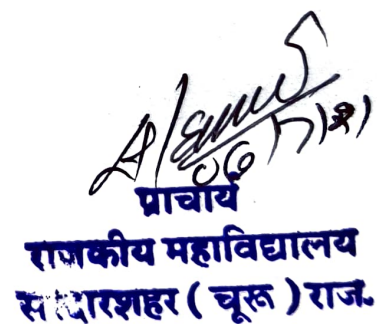 प्राचार्य
राजकीय महाविद्यालय
सरदारशहर ( चूरू ) राज.